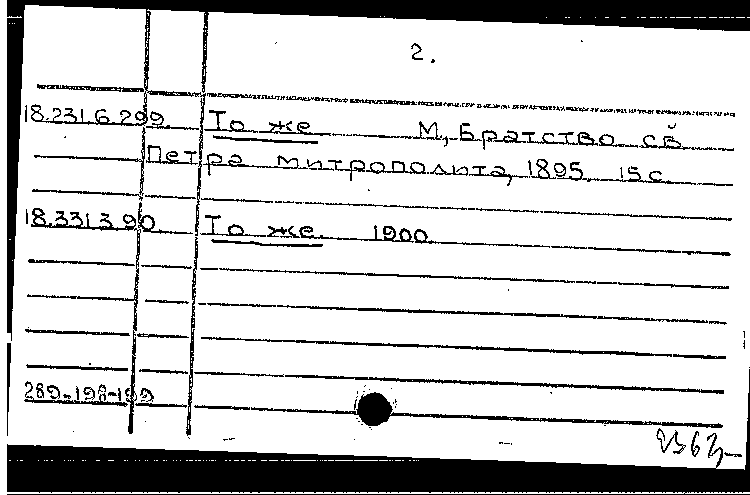 2.
18.231.6.299. То же М, Братство св
Петра митрополита, 1895. 15 с.
18.331.3.90. То же. 1900.
289-198-199